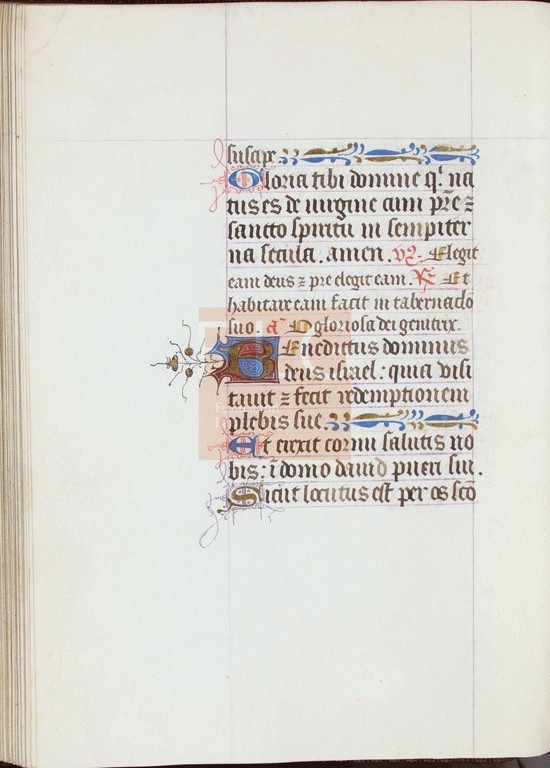 suscipe.
Gloria tibi domine qͥ na
tus es de uirgine cum pr̄e ⁊
sancto spiritu in sempiter
na secula. amen. v̄. Elegit
eam deus ⁊ pre elegit eam. R̄. Et
habitare eam facit in tabernaclo
suo. an̄. O gloriosa dei genitrix.
Benedictus dominus
deus israel: quia uisi
tauit ⁊ fecit redemptionem
plebis sue.
Et erexit cornu salutis no
bis: ī domo dauid pueri sui.
Sicut locutus est per os scō